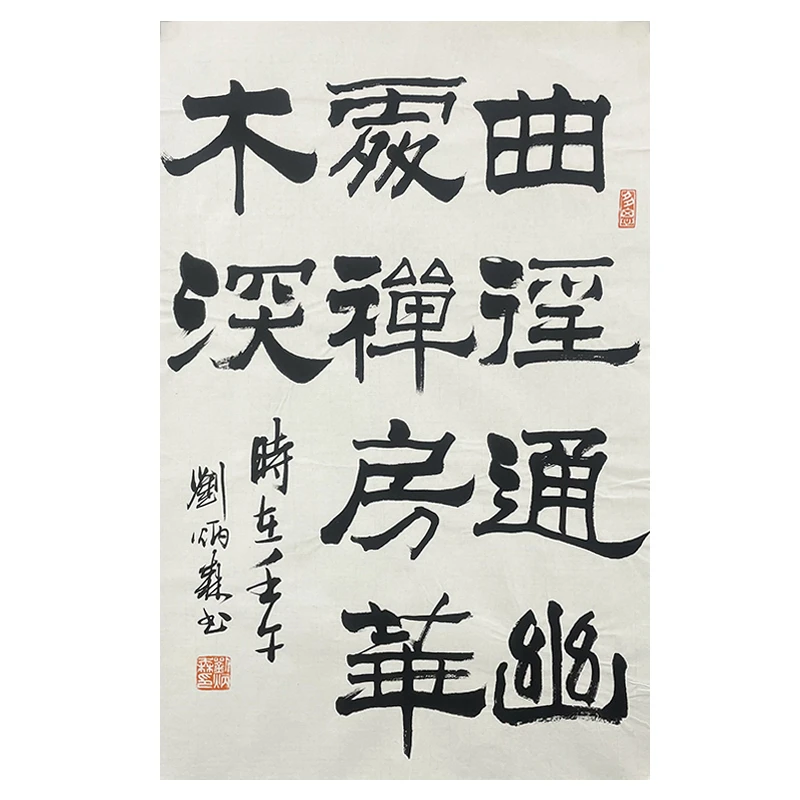 曲徑通幽
處禪房華
木深
時在壬午
劉炳森書
劉炳森印